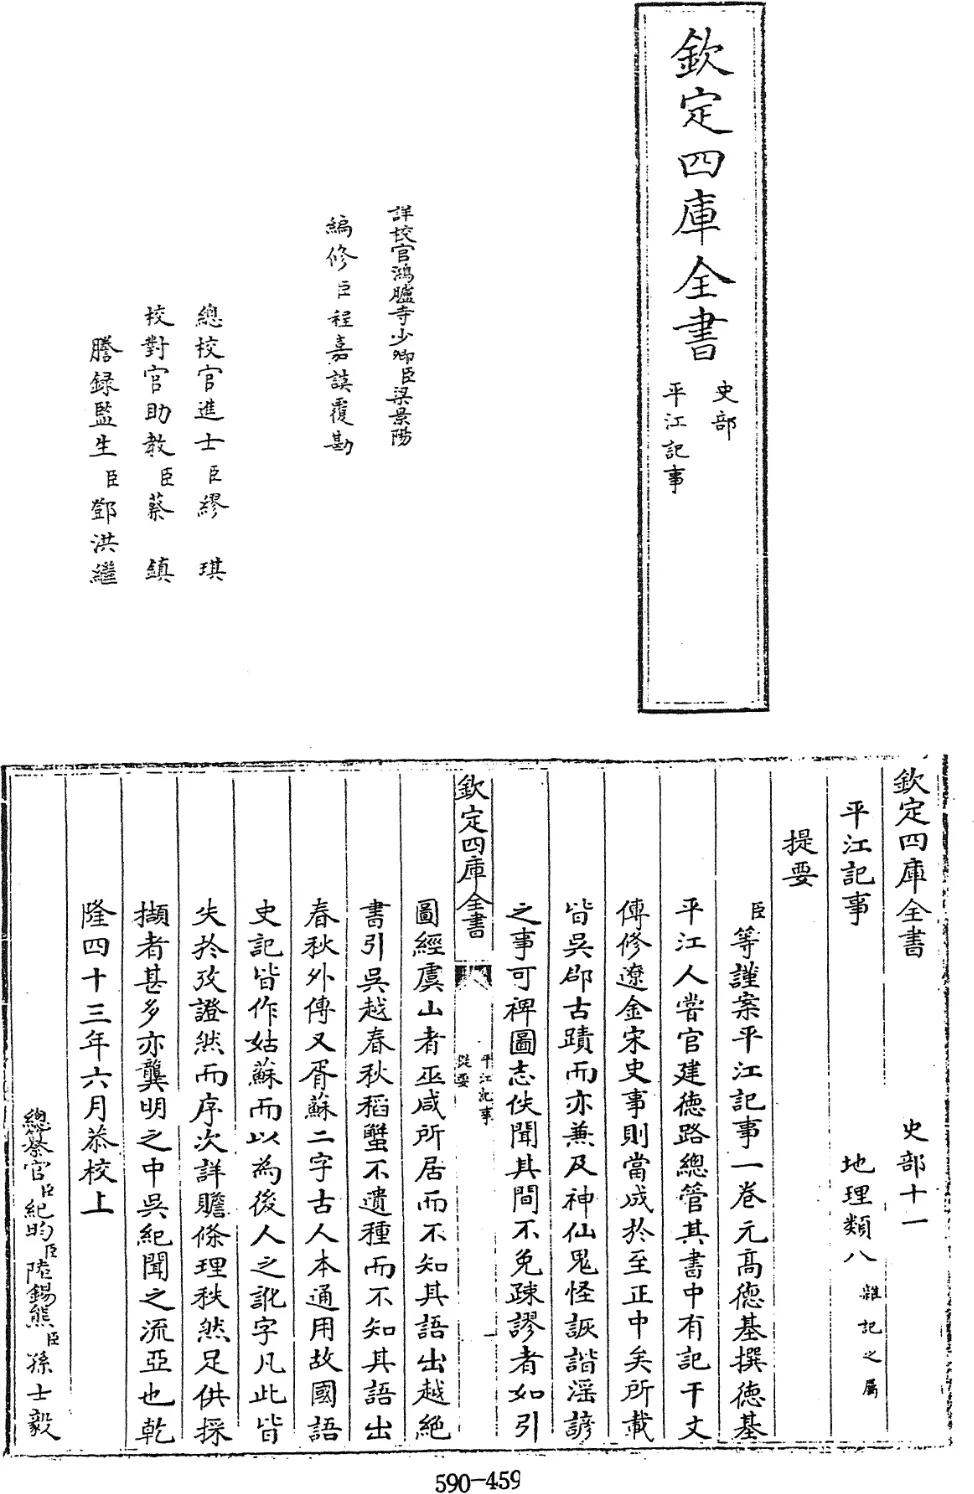 欽定四庫全書
史部
平江記事
詳校官鴻臚寺少卿臣梁景陽
編修臣程嘉謨覆勘
總校官進士臣繆琪
校對官助教臣蔡鎮
謄録監生臣鄧洪繼
欽定四庫全書 史部十一
平江記事 地理類八 雜記之屬
提要
臣等謹案平江記事一卷元高德基撰德基
平江人嘗官建德路總管其書中有記干文
傳修遼金宋史事則當成於至正中矣所載
皆吳郡古蹟而亦兼及神仙鬼怪詼諧謡諺
之事可裨圖志佚聞其間不免踈謬者如引
欽定四庫全書
平江記事
提要
一
圖經虞山者巫咸所居而不知其語出越絶
書引吳越春秋稻蟹不遺種而不知其語出
春秋外傳又胥蘇二字古人本通用故國語
史記皆作姑蘇而以為後人之訛字凡此皆
失於攷證然而序次詳贍條理秩然足供採
擷者甚多亦龔明之中吳紀聞之流亞也乾
隆四十三年六月恭校上
總纂官臣紀昀臣陸錫熊臣孫士毅
590-459